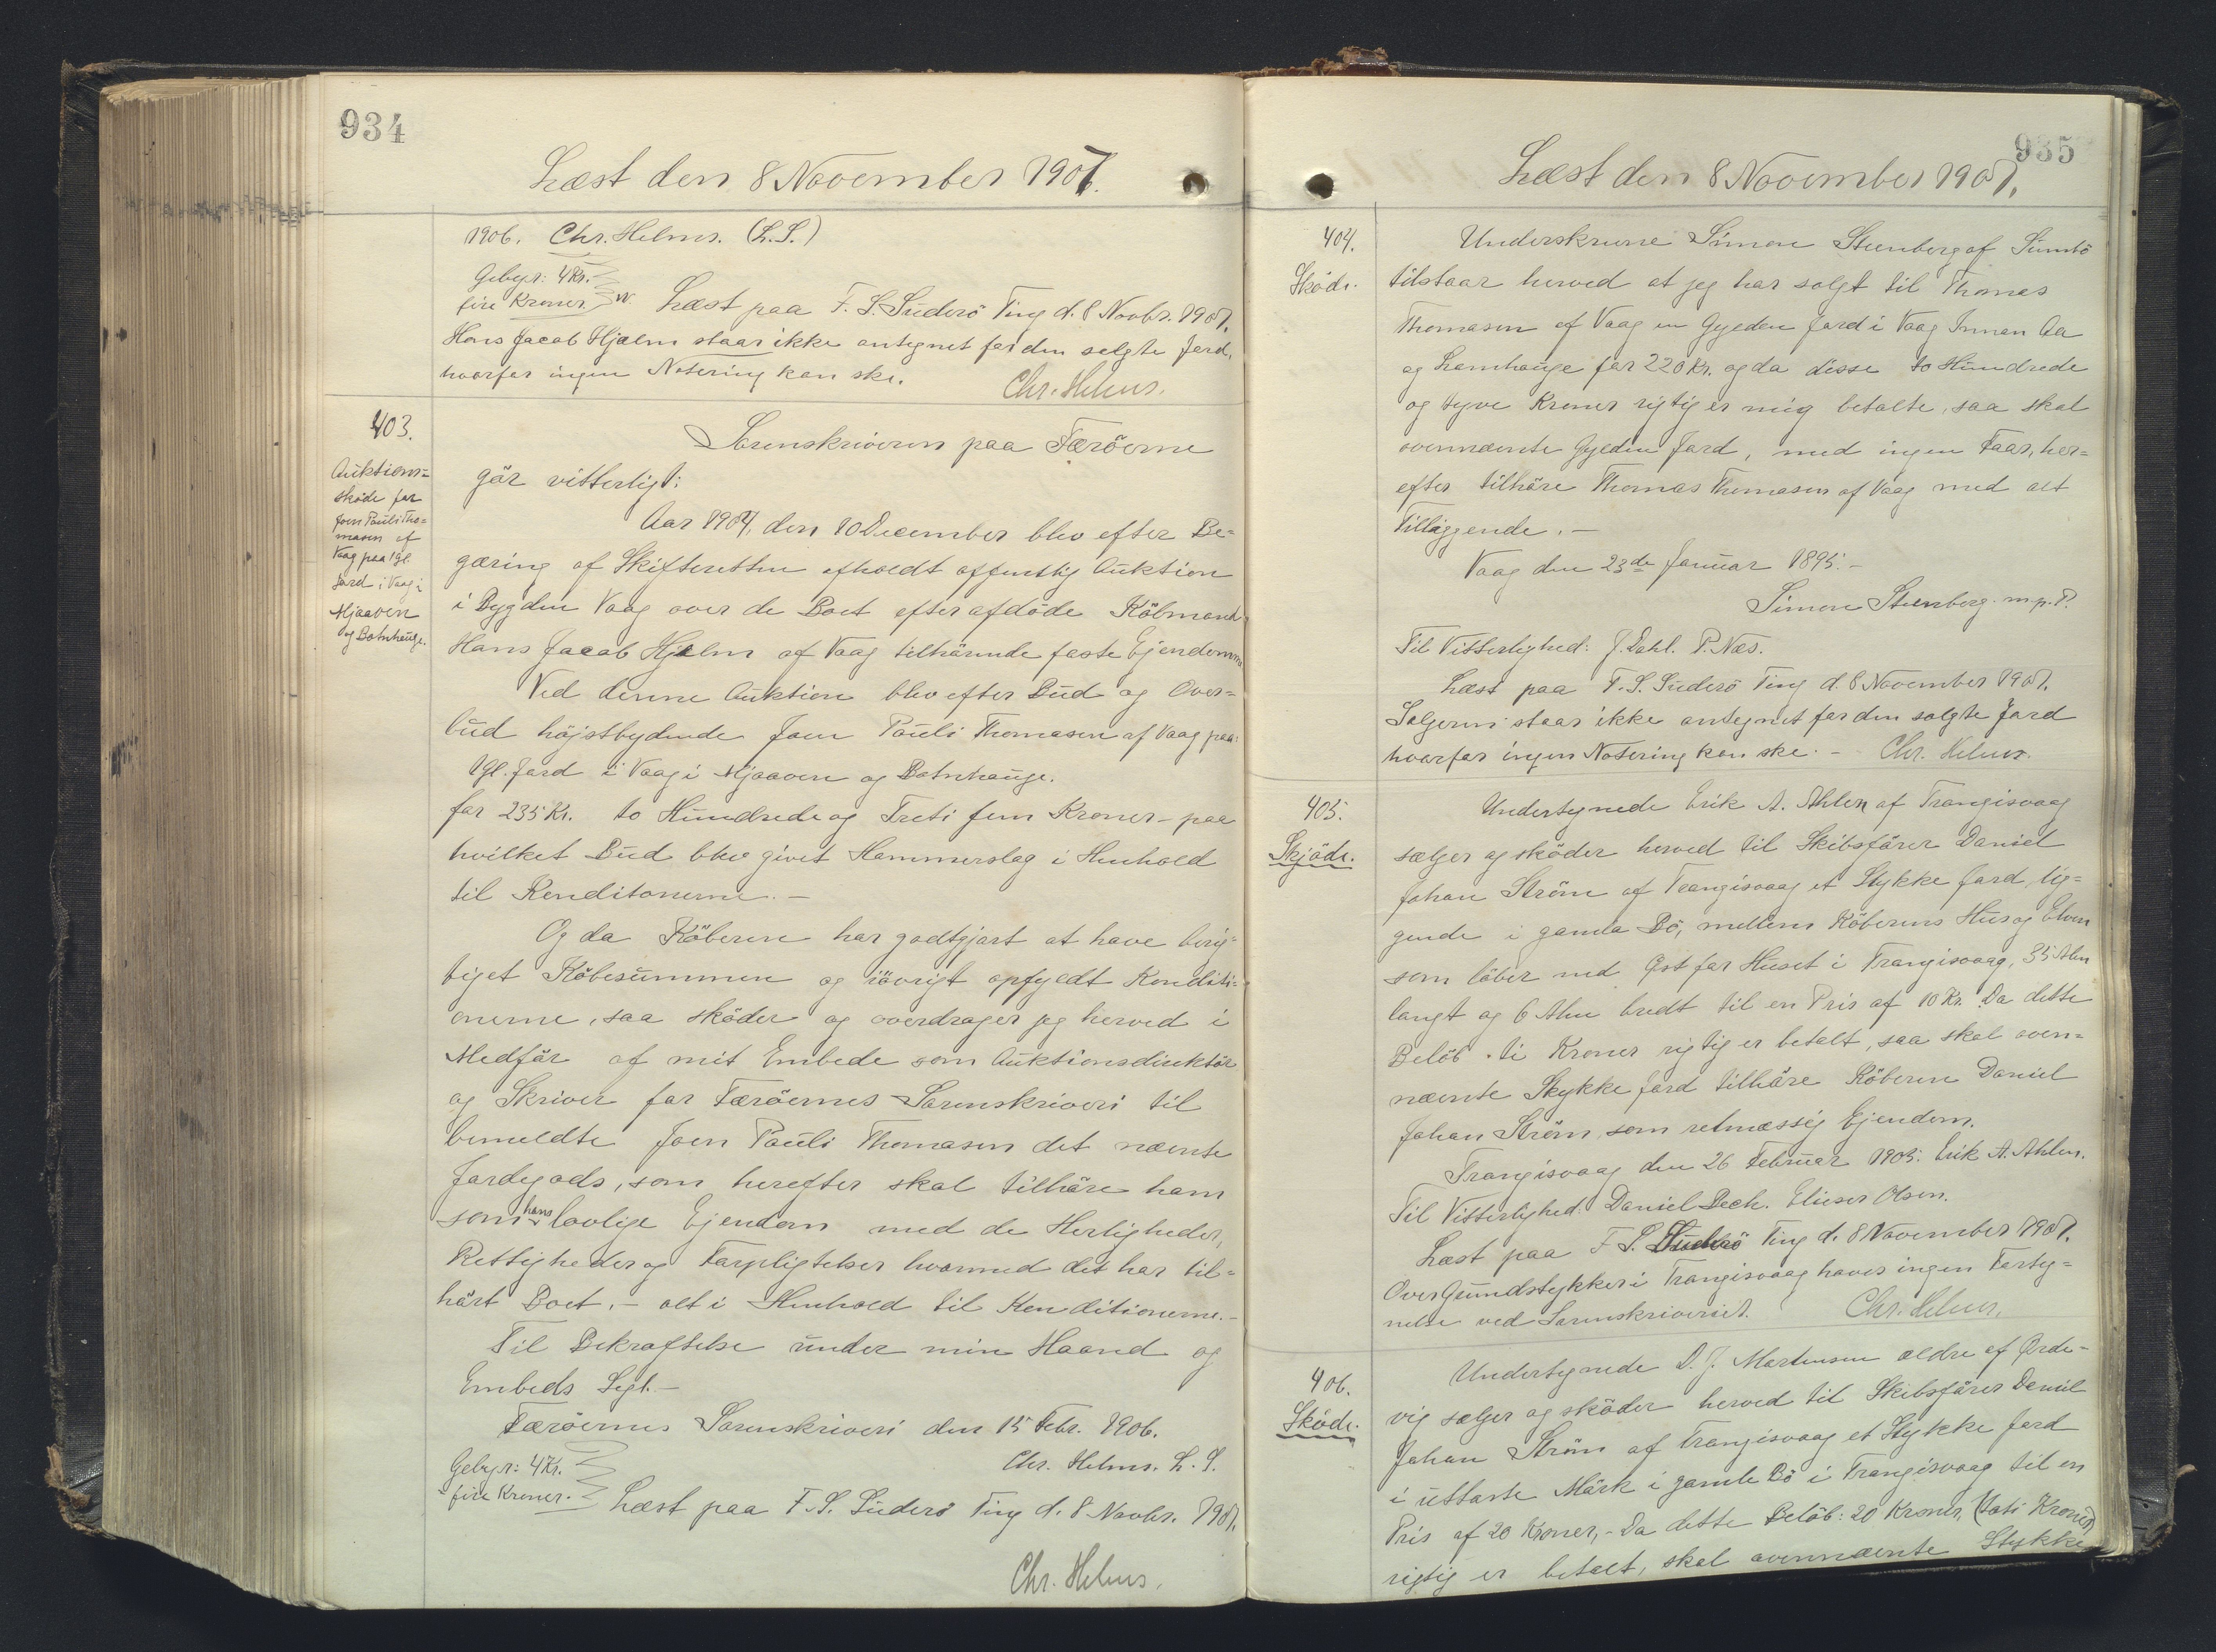 934
Læst den 8 November 1907.
1906. Chr. Helms. (L.S.)
Gebyr: 4 Kr.
fire Kroner
Læst paa F. S. Suderö Ting d. 8 Novbr. 1907.
Hans Jacob Hjelm staar ikke antegnet for den solgte Jord,
hvorfor ingen Notering kan ske.
Chr. Helms.
403.
Auktions=
sköde for
Joen Pauli Tho=
masen af
Vaag paa 1 gl.
Jord i Vaag i
Hjaaven
og Botnhauge.
Sorenskriveren paa Færöerne
gör vitterligt:
Aar 1904, den 10 December blev efter Be=
gæring af Skifteretten afholdt offentlig Auktion
i Bygden Vaag over de Boet efter afdöde Köbmand
Hans Jacob Hjelm af Vaag tilhörende faste Ejendomme
Ved denne Auktion blev efter Bud og Over=
bud höjstbydende Joen Pauli Thomasen af Vaag paa:
1 gl. Jord i Vaag i Hjaaven og Botnhauge.
for 235 Kr. to Hundrede og Treti fem Kroner - paa
hvilket Bud blev givet Hammerslag i Henhold
til Konditonerne. -
Og da Köberen har godtgjort at have berig=
tiget Köbesummen og iövrigt opfyldt Konditi=
onerne, saa sköder og overdrager jeg herved i
Medför af mit Embede som Auktionsdirektör
og Skriver for Færöernes Sorenskriveri til
bemeldte Joen Pauli Thomasen det nævnte
Jordegods, som herefter skal tilhöre ham
som hans lovlige Ejendom med de Herligheder,
Rettigheder og Forpligtelser hvormed det har til=
hört Boet. - alt i Henhold til Konditionerne. -
Til Bekræftelse under min Haand og
Embeds Segl. -
Færöernes Sorenskriveri den 15 Febr. 1906.
Chr. Helms. L. S.
Gebyr: 4 Kr.
fire Kroner.
Læst paa F. S. Suderö Ting d. 8 Novbr. 1907.
Chr. Helms.
935
Læst den 8 November 1907.
404.
Sköde.
Underskrevne Simon Steenberg af Sumbö
tilstaar herved at jeg har solgt til Thomas
Thomasen af Vaag en Gylden Jord i Vaag Innan Aa
og Lamhauge for 220 Kr. og da disse to Hundrede
og tyve Kroner rigtig er mig betalte, saa skal
ovennævnte Gylden Jord, med ingen Faar, her=
efter tilhöre Thomas Thomasen af Vaag med alt
Tilliggende. -
Vaag den 23de Januar 1895. -
Simon Steenberg. m.p.P.
Til Vitterlighed: J. Dahl. P. Næs.
Læst paa F. S. Suderö Ting d. 8 November 1907.
Sælgeren staar ikke antegnet for den solgte Jord
hvorfor ingen Notering kan ske. - Chr. Helms.
405.
Skjöde.
Undertegnede Erik A. Ahlen af Trangisvaag
sælger og sköder herved til Skibsförer Daniel
Johan Ström af Trangisvaag et Stykke Jord, lig=
gende i gamla Bö, mellem Köberens Hus og Elven
som löber ned Øst for Huset i Trangisvaag, 35 Alen
langt og 6 Alen bredt til en Pris af 10 Kr. Da dette
Belöb. ti Kroner rigtig er betalt, saa skal oven=
nævnte Stykke Jord tilhöre Köberen Daniel
Johan Ström som retmæssig Ejendom.
Trangisvaag den 26 Februar 1905. Erik A. Ahlen.
Til Vitterlighed: Daniel Bech. Elieser Olsen.
Læst paa F. S. Suderö Ting d. 8 November 1907.
Over Grundstykker i Trangisvaag haves ingen Forteg=
nelse ved Sorenskriveriet. Chr. Helms.
406.
Sköde.
Undertegnede D. J. Mortensen ældre af Ørde-
vig sælger og sköder herved til Skibsförer Daniel
Johan Ström af Trangisvaag et Stykke Jord
i uttaste Mörk i gamle Bö i Trangisvaag til en
Pris af 20 Kroner, - Da dette Belöb: 20 Kroner, (toti Kroner)
rigtig er betalt, skal ovennævnte Stykke